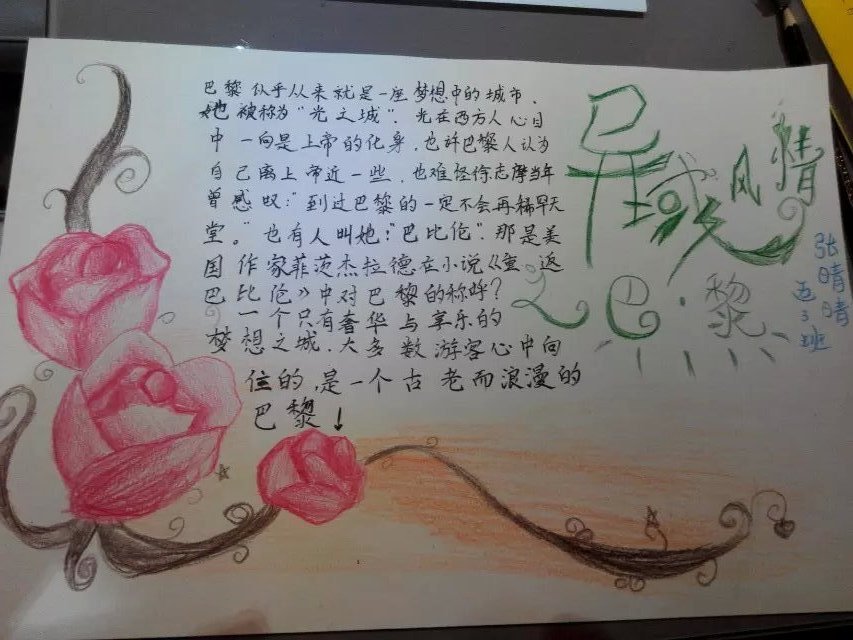 巴黎似乎从来就是一座梦想中的城市、
她被称为“光之城”.光在西方人心目
中一向是上帝的化身,也许巴黎人认为
自己离上帝近一些,也难怪徐志摩当年
曾感叹:“到过巴黎的一定不会再稀罕天
堂。”也有人叫她:“巴比伦”.那是美
国作家菲茨杰拉德在小说《重返
巴比伦》中对巴黎的称呼?
一个只有奢华与享乐的
梦想之城.大多数游客心中向
往的,是一个古老而浪漫的
巴黎!
异域风情
之巴·黎
张晴晴
五3班